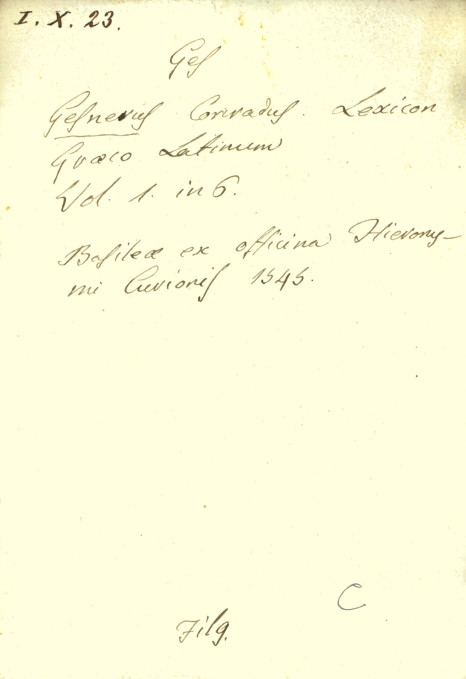 I. X. 23.
Ges
Gesnerus Conradus. Lexicon
Graeco Latinum
Vol. 1. in 6.
Basileae ex officina Hierony-
mi Curionis 1545.
C
Filg.